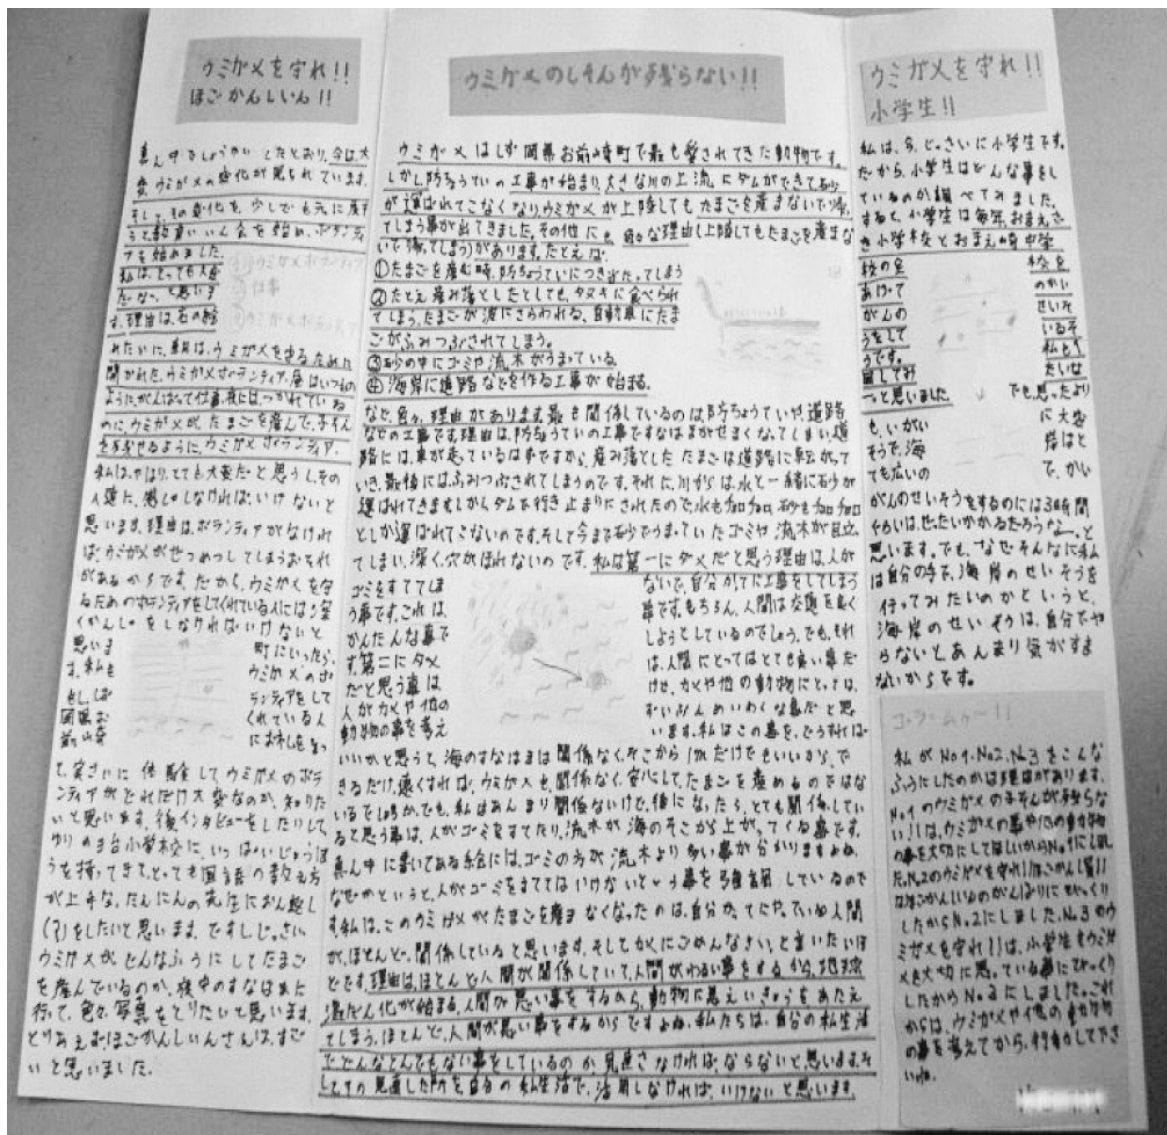 ウミガメを守れ!!
ほごかんしいん!!
真ん中でしょうかいしたとおり、今は、大
変、ウミガメの変化が見られています。
そして、その変化を、少しでも元に戻そ
うと教育いいん会を始め、ボランティ
アを始めました。
私は、とっても大変
だな〜。と思いま
す。理由は、右の絵
みたいに、朝は、ウミガメを守るために
開かれた、ウミガメボランティア。昼はいつもの
ように、がんばって仕事。夜には、つかれている
のに、ウミガメが、たまごを産んで、子そん
を残せるように、ウミガメボランティア。
私は、やはり、とても大変だと思うし、その
人達に、感しゃしなければ、いけないと
思います。理由は、ボランティアがなけれ
ば、ウミガメがぜつめつしてしまうおそれ
があるからです。だから、ウミガメを守
るためのボランティアをしてくれている人には、深
くかんしゃをしなければいけないと
思いま
す。私も
もし、しず
岡県お
前崎
町にいったら、
ウミガメのボ
ランティアをして
くれている人
にお礼を言っ
て、実さいに体験して、ウミガメのボラ
ンティアがどれだけ大変なのか、知りた
いと思います。後インタビューをしたりして、
ゆりの台小学校に、いっぱいじょうほ
うを持ってきて、とっても国語の教え方
が上手な、たんにんの先生におん返し
(?)をしたいと思います。ですし、じっさい
ウミガメが、どんなふうにしてたまご
を産んでいるのか、夜中のすなはまに
行って、色々、写真をとりたいと思います。
とりあえずほごかんしいんさんは、すご
いと思いました。
ウミガメのしそんが残らない!!
ウミガメはしず岡県お前崎町で最も愛されてきた動物です。
しかし、防ちょうていの工事が始まり、大きな川の上流にダムができて砂
が運ばれてこなくなり、ウミガメが上陸してもたまごを産まないで、帰っ
てしまう事が出てきました。その他にも、色々な理由(上陸してもたまごを産まな
いで、帰ってしまう)があります。たとえば、
①たまごを産む時、防ちょうていにつき当たってしまう
②たとえ産み落としたとしても、タヌキに食べられ
てしまう、たまごが波にさらわれる、自動車にたま
ごがふみつぶされてしまう。
③砂の中にゴミや流木がうまっている。
④海岸に道路などを作る工事が始まる。
など、色々、理由があります。最も関係しているのは、防ちょうていや、道路
などの工事です。理由は、防ちょうていの工事ですなはまがせまくなってしまい、道
路には、車が走っているはずですから、産み落としたたまごは道路に転がって
いき、最後には、ふみつぶされてしまうのです。それに、川からは、水と一緒に砂が
運ばれてきます。しかしダムで行き止まりにされたので、水もチョロチョロ、砂もチョロチョロ
としか運ばれてこないのです。そして、今まで砂でうまっていたゴミや流木が目立
てしまい、深く穴がほれないのです。私は第一にダメだと思う理由は、人が
ゴミをすててしま
う事です。これは、
かんたんな事で
す。第二にダメ
だと思う事は、
人がカメや他の
動物の事を考え
ないで、自分かってに工事をしてしまう
事です。もちろん、人間は交通を良く
しようとしているのでしょう。でも、それ
は、人間にとってはとても良い事だ
けど、カメや他の動物にとっては、
ずいぶんめいわくな事だと思
います。私はこの事を、どうすれば
いいかと思うと、海のすなはまは関係なく、そこから1mだけでもいいから、で
きるだけ、遠くすれば、ウミガメも、関係なく、安心して、たまごを産めるのではな
いでしょうか。でも、私はあんまり関係ないけど、後になったら、とても関係してい
ると思う事は、人がゴミをすてたり、流木が海のそこから上がってくる事です。
真ん中に書いてある絵には、ゴミの方が流木より多い事が分かりますよね。
なぜかというと、人がゴミをすててはいけないという事を強調しているので
す。私は、このウミガメがたまごを産まなくなったのは、自分かってにやっている人間
が、ほとんど、関係していると思います。そしてカメにごめんなさい。と言いたいほ
どです。理由は、ほとんど人間が関係していて、人間がわるい事をするから、地球
温だん化が始まる、人間が悪い事をするから、動物に悪えいきょうをあたえ
てしまう。ほとんど、人間が悪い事をするからですよね。私たちは、自分の私生活
でどんなとんでもない事をしているのか見直さなければ、ならないと、思います。そ
してその見直した所を自分の私生活で、活用しなければ、いけないと思います。
ウミガメを守れ!!
小学生!!
私は、今、じっさいに小学生です。
だから、小学生はどんな事をし
ているのか調べてみました。
すると、小学生は毎年、おまえざ
き小学校とおまえ崎中学
校の全
あげて
がんの
うをして
うです。
校を
のかい
せいそ
いるそ
私もみ
たいな
って思いました。
でも、思ったより
も、いがい
そうで、海
ても広いの
に大変
岸はと
で、かい
がんのせいそうをするのには3時間
ぐらいは、ぜったいかかるだろうな〜。と
思います。でも、なぜそんなに私
は自分の手で、海岸のせいそうを
行ってみたいのかというと、
海岸のせいそうは、自分でや
らないと、あんまり気がすま
ないからです。
コ・ラ・ムゥ〜!!
私がNo.1、No.2、No.3をこんな
ふうにしたのかは理由があります。
No.1のウミガメの子そんが残らな
い!!は、ウミガメの事や他の動物
の事を大切にしてほしいからNo.1にしまし
た。No.2のウミガメを守れ!!ほごかんし員!!
はほごかんしいんのがんばりにびっくり
したからNo.2にしました。No.3のウ
ミガメを守れ!!は、小学生もウミガ
メを大切に思っている事にびっくり
したからNo.3にしました。これ
からは、ウミガメや他の動物
の事を考えてから、行動して下さ
いね。